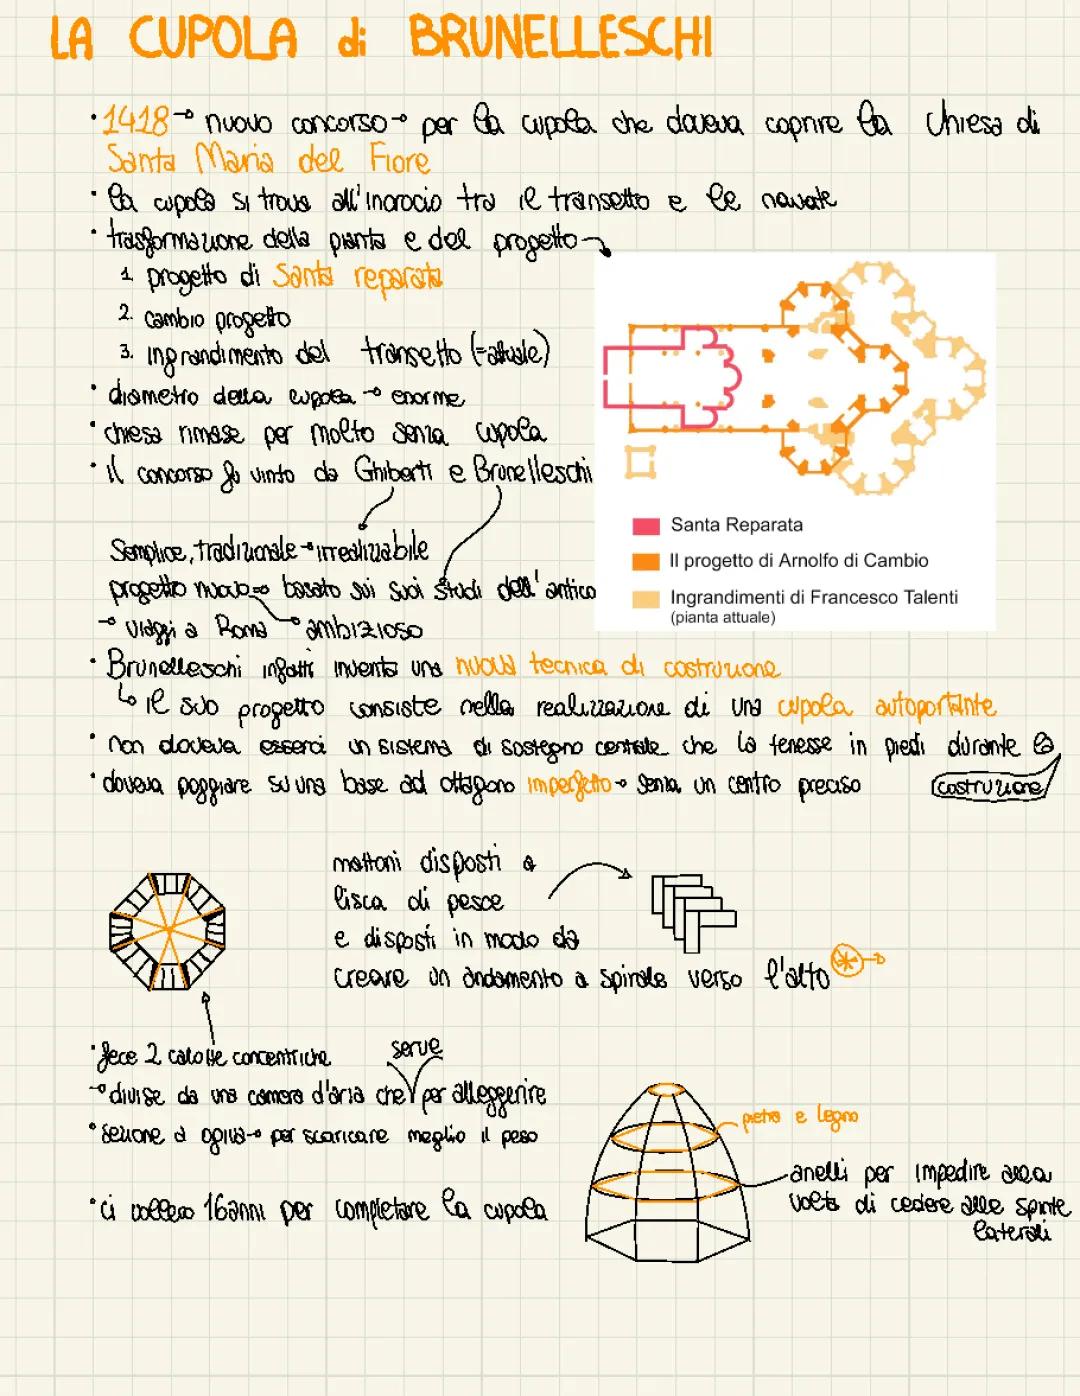 LA CUPOLA di BRUNELLESCHI
• 1418 → nuovo concorso → per la cupola che doveva coprire la chiesa di
Santa Maria del Fiore
• la cupola si trova all'incrocio tra il transetto e le navate
• trasformazione della pianta e del progetto →
1. progetto di Santa reparata
2. cambio progetto
3. ingrandimento del transetto (=attuale)
• diametro della cupola → enorme
• chiesa rimase per molto senza cupola
• il concorso fu vinto da Ghiberti e Brunelleschi
Santa Reparata
Il progetto di Arnolfo di Cambio
Ingrandimenti di Francesco Talenti
(pianta attuale)
Semplice, tradizionale → irrealizzabile
progetto nuovo → basato sui suoi studi dell'antico
→ viaggi a Roma → ambizioso
• Brunelleschi infatti inventa una nuova tecnica di costruzione
↳ il suo progetto consiste nella realizzazione di una cupola autoportante
• non doveva esserci un sistema di sostegno centrale che la tenesse in piedi durante la
costruzione
• doveva poggiare su una base ad ottagono imperfetto → senza un centro preciso
mattoni disposti a
lisca di pesce
e disposti in modo da
creare un andamento a spirale verso l'alto
• fece 2 calotte concentriche
→ divise da una camera d'aria che serve per alleggerire
• sezione a ogiva → per scaricare meglio il peso
• ci vollero 16 anni per completare la cupola
pietra e legno
anelli per impedire alla
volta di cedere alle spinte
laterali